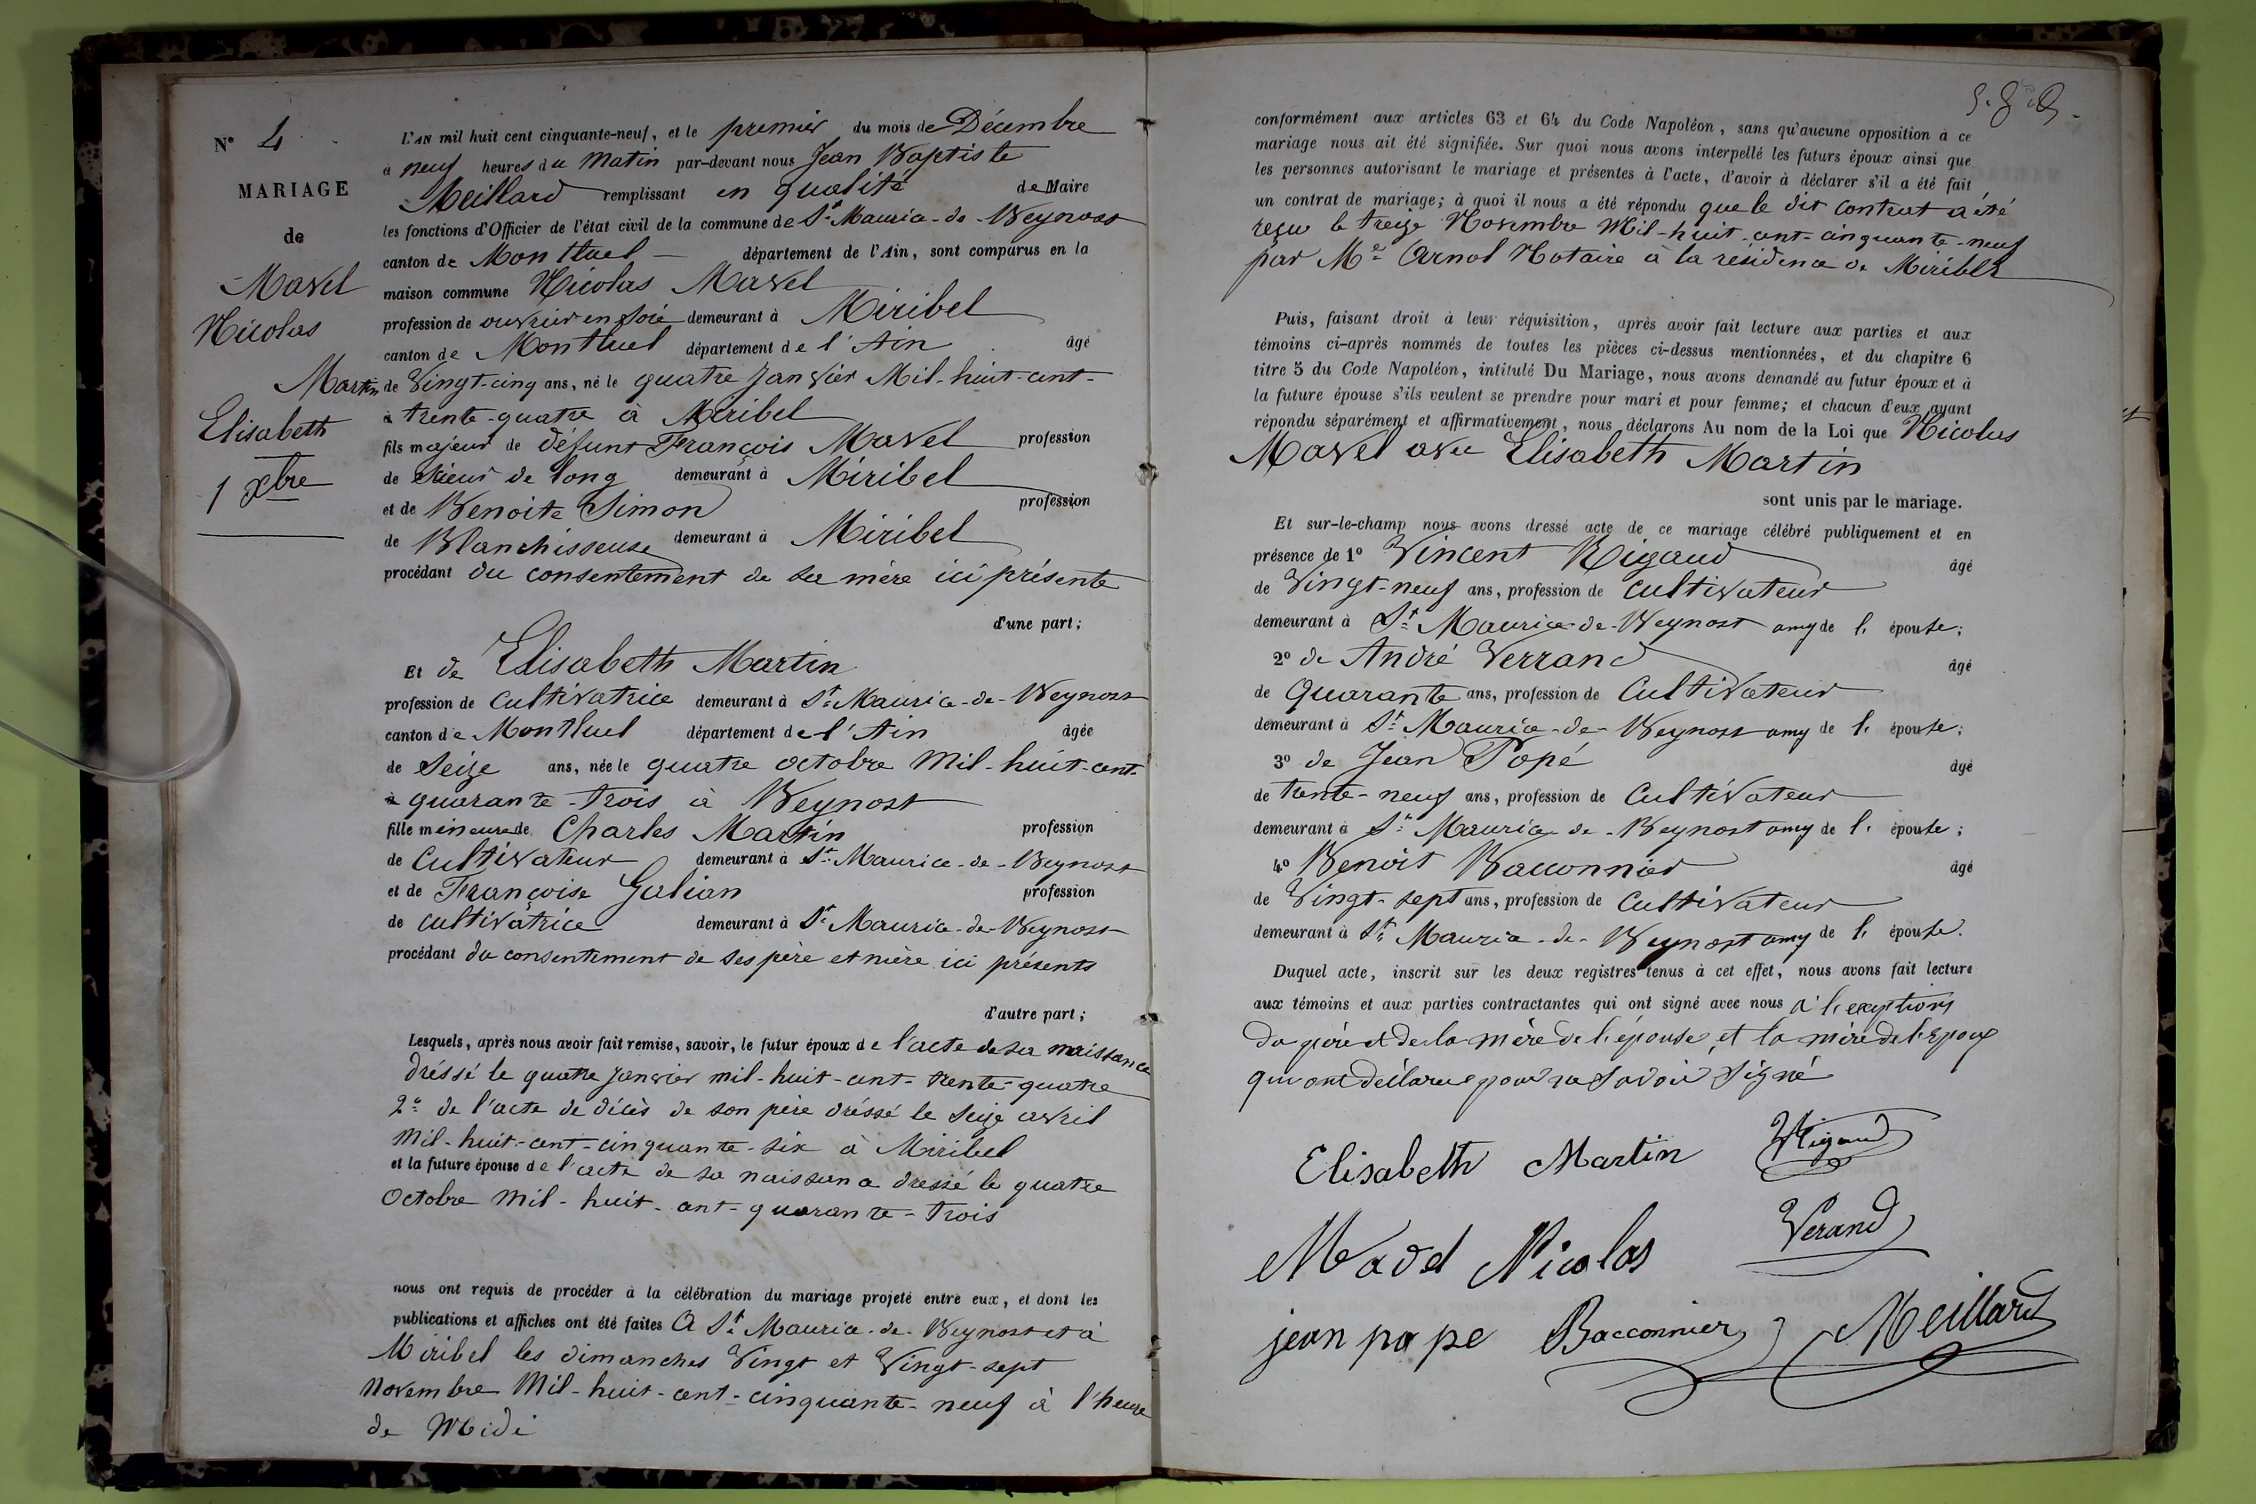 N° 4
MARIAGE
de
Mavel
Nicolas
Martin
Elisabeth
1 Xbre
L'AN mil huit cent cinquante-neuf, et le premier du mois de Décembre
à neuf heures du Matin par-devant nous Jean Baptiste
Meillard remplissant en qualité de Maire
les fonctions d'Officier de l'état civil de la commune de St Maurice-de-Beynost
canton de Montluel département de l'Ain, sont comparus en la
maison commune Nicolas Mavel
profession de ouvrier en soie demeurant à Miribel
canton de Montluel département de l'Ain âgé
de Vingt-cinq ans, né le quatre Janvier Mil-huit-cent-
à trente-quatre à Miribel
fils majeur de défunt François Mavel profession
de Scieur de long demeurant à Miribel
et de Benoite Simon profession
de Blanchisseuse demeurant à Miribel
procédant du consentement de sa mère ici présente
d'une part;
Et de Elisabeth Martin
profession de Cultivatrice demeurant à St Maurice-de-Beynost
canton de Montluel département de l'Ain âgée
de Seize ans, née le quatre octobre Mil-huit-cent-
à quarante-trois à Beynost
fille mineure de Charles Martin profession
de Cultivateur demeurant à St Maurice-de-Beynost
et de Françoise Galian profession
de cultivatrice demeurant à St Maurice-de-Beynost
procédant du consentement de ses père et mère ici présents
d'autre part;
Lesquels, après nous avoir fait remise, savoir, le futur époux de l'acte de sa naissance
dréssé le quatre Janvier mil-huit-cent-trente-quatre
2° de l'acte de décès de son père dréssé le Seize avril
Mil-huit-cent-cinquante-six à Miribel
et la future épouse de l'acte de sa naissance dressé le quatre
Octobre Mil-huit-cent-quarante-trois
nous ont requis de procéder à la célébration du mariage projeté entre eux, et dont les
publications et affiches ont été faites A St Maurice-de-Beynost et à
Miribel les dimanches Vingt et Vingt-sept
Novembre Mil-huit-cent-cinquante-neuf à l'heure
de Midi
conformément aux articles 63 et 64 du Code Napoléon, sans qu'aucune opposition à ce
mariage nous ait été signifiée. Sur quoi nous avons interpellé les futurs époux ainsi que
les personnes autorisant le mariage et présentes à l'acte, d'avoir à déclarer s'il a été fait
un contrat de mariage; à quoi il nous a été répondu que le dit contrat a été
reçu le treize Novembre Mil-huit-cent-cinquante-neuf
par Me Arnol Notaire à la résidence de Miribel
Puis, faisant droit à leur réquisition, après avoir fait lecture aux parties et aux
témoins ci-après nommés de toutes les pièces ci-dessus mentionnées, et du chapitre 6
titre 5 du Code Napoléon, intitulé Du Mariage, nous avons demandé au futur époux et à
la future épouse s'ils veulent se prendre pour mari et pour femme; et chacun d'eux ayant
répondu séparément et affirmativement, nous déclarons Au nom de la Loi que Nicolas
Mavel avec Elisabeth Martin
sont unis par le mariage.
Et sur-le-champ nous avons dressé acte de ce mariage célébré publiquement et en
présence de 1° Vincent Rigaud âgé
de Vingt-neuf ans, profession de cultivateur
demeurant à St Maurice-de-Beynost amy de l' épouse;
2° de André Verrand âgé
de Quarante ans, profession de Cultivateur
demeurant à St Maurice-de-Beynost amy de l' épouse;
3° de Jean Popé âgé
de trente-neuf ans, profession de Cultivateur
demeurant à St Maurice de-Beynost amy de l' épouse;
4° Benoit Bacconnier âgé
de Vingt-sept ans, profession de Cultivateur
demeurant à St Maurice-de-Beynost amy de l' épouse.
Duquel acte, inscrit sur les deux registres tenus à cet effet, nous avons fait lecture
aux témoins et aux parties contractantes qui ont signé avec nous à l'exceptions
du père et de la mère de l'épouse, et la mère de l'Epoux
qui ont déclaré pour ne savoir Signé
Elisabeth Martin Rigaud
Mavel Nicolas Verand
jean pape Bacconnier Meillard